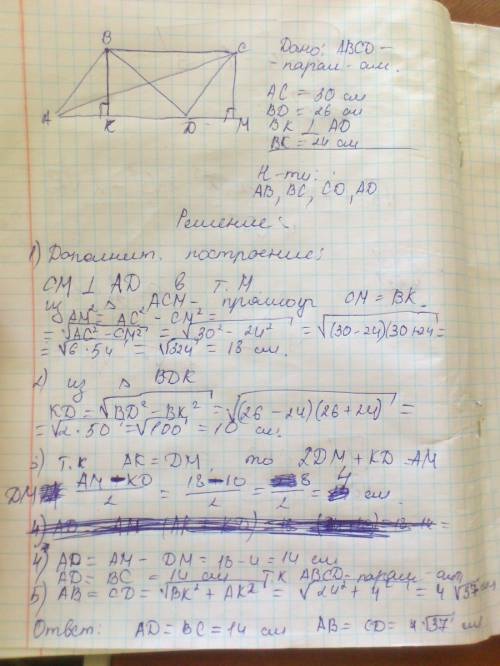 B
C
A
K
D
M
Дано: ABCD -
- парал-ам.
AC = 30 см
BD = 26 см
BK ⊥ AD
BK = 24 см
Н-ти:
AB, BC, CD, AD
Решение:
1) Дополнит. построение:
CM ⊥ AD в т. M
из △ ACM - прямоуг CM = BK.
AM² = AC² - CM² =
= √AC² - CM² = √30² - 24² = √(30-24)(30+24) =
= √6·54 = √324 = 18 см.
2) из △ BDK
KD = √BD² - BK² = √(26-24)(26+24) =
= √2·50 = √100 = 10 см.
3) т.к AK = DM, то 2DM + KD = AM
DM = AM - KD / 2 = 18-10 / 2 = 8 / 2 = 4 см.
4) AD = AM - DM = 18 - 4 = 14 см
AD = BC = 14 см т.к ABCD = парал-ам
5) AB = CD = √BK² + AK² = √24² + 4² = 4√37 см
Ответ: AD = BC = 14 см AB = CD = 4√37 см